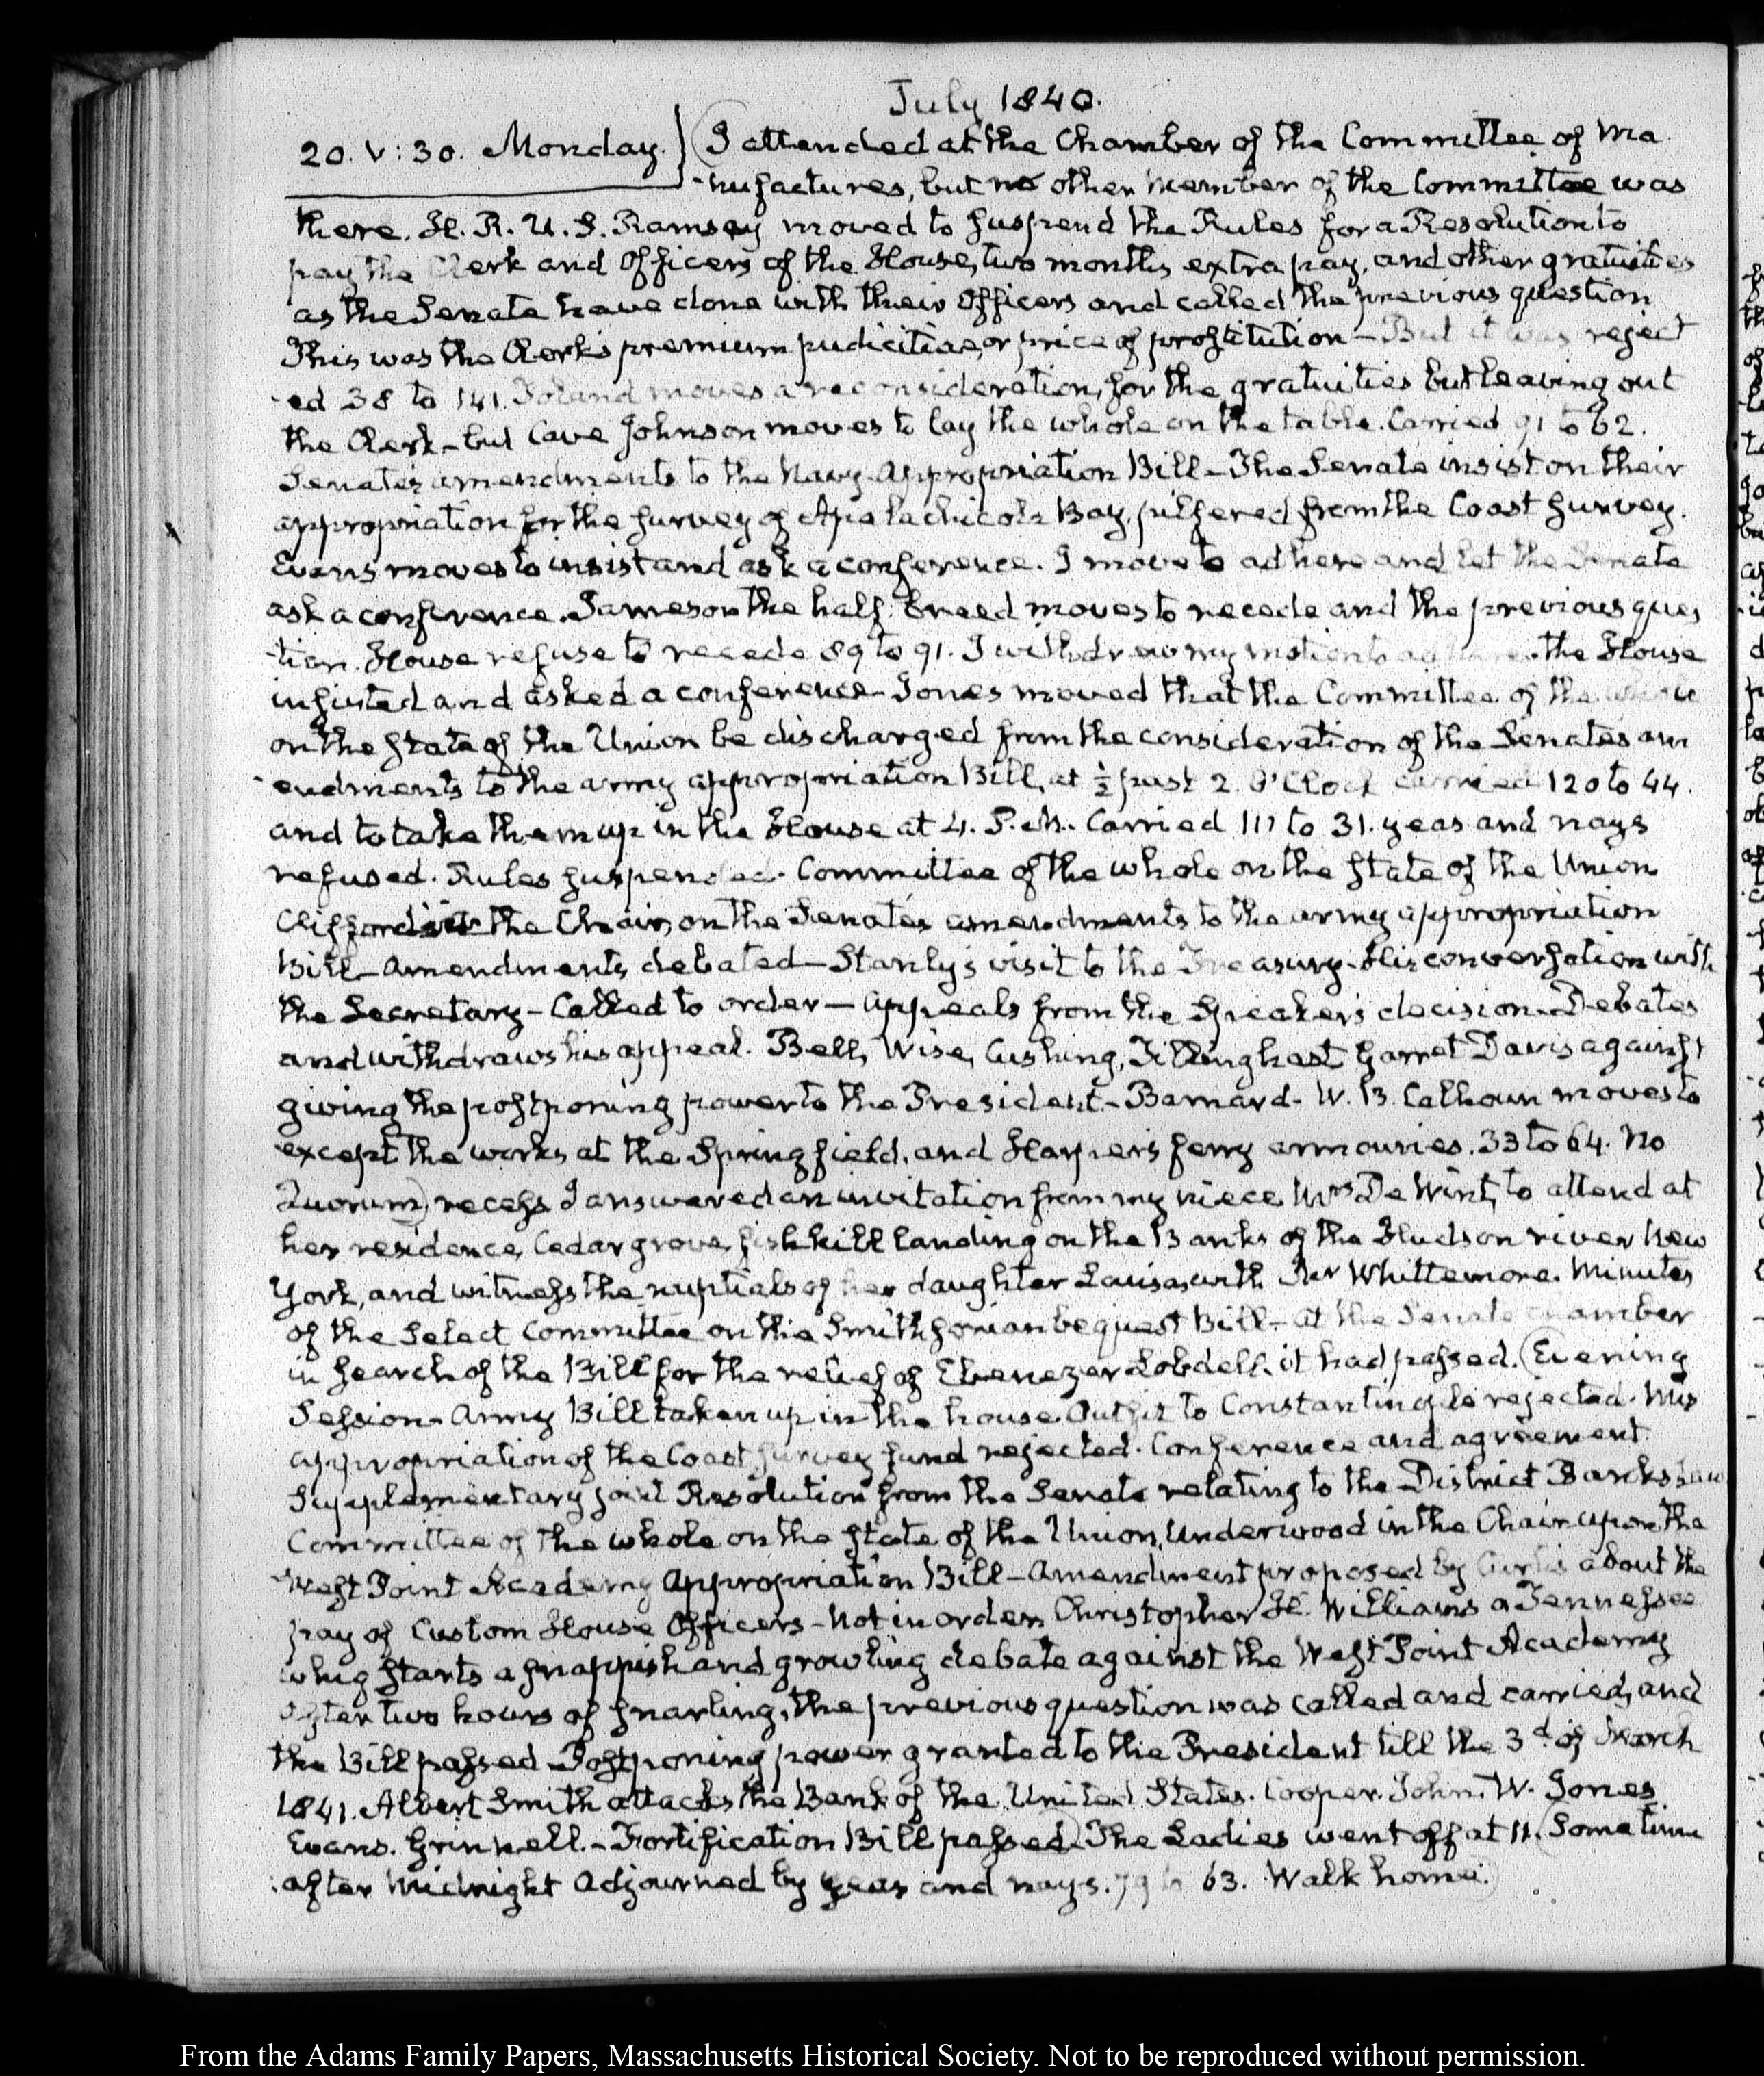 July 1840.
20. V: 30. Monday. I attended at the Chamber of the Committee of Ma
-nufactures, but no other member of the Committee was
there. H. R. U. S. Ramsey moved to suspend the Rules for a Resolution to
pay the Clerk and Officers of the House, two months extra pay, and other gratuities
as the Senate have done with their Officers and called the previous question
This was the Clerk's premium pudicitiae, or price of prostitution – But it was reject
-ed 38 to 141. Toland moves a reconsideration, for the gratuities but leaving out
the Clerk – but Cave Johnson moves to lay the whole on the table. Carried 91 to 62.
Senate's amendments to the Navy Appropriation Bill – The Senate insist on their
appropriation for the survey of Apalachicola Bay, pilfered from the Coast survey.
Evans moves to insist and ask a conference. I move to adhere and let the Senate
ask a conference. Jameson the half-breed moves to recede and the previous ques
-tion. House refuse to recede 89 to 91. I withdrew my motion to adhere. the House
insisted and asked a conference – Jones moved that the Committee of the whole
on the state of the Union be discharged from the consideration of the Senate's am
-endments to the army appropriation Bill, at ½ past 2. O'Clock carried 120 to 44.
and to take them up in the House at 4. P.M. Carried 111 to 31. yeas and nays
refused. Rules suspended. Committee of the whole on the state of the Union
Clifford in the Chair, on the Senate's amendments to the army appropriation
Bill – Amendments debated – Stanly's visit to the Treasury – His conversation with
the Secretary – Called to order – appeals from the Speaker's decision – Debates
and withdraws his appeal. Bell, Wise, Cushing, Tillinghast Garret Davis against
giving the postponing power to the President – Barnard – W. B. Calhoun moves to
except the works at the Springfield, and Harper's ferry armouries. 33 to 64. No
Quorum) recess I answered an invitation from my niece Mrs De Wint, to attend at
her residence, Cedar grove, fishkill landing on the Banks of the Hudson river New
York, and witness the nuptials of her daughter Louisa, with Mr Whittemore. Minutes
of the Select Committee on the Smithsonian bequest Bill – at the Senate chamber
in search of the Bill for the relief of Ebenezer Lobdell. it had passed. (Evening
Session – Army Bill taken up in the house Outfit to Constantinople rejected. Mis
appropriation of the Coast survey fund rejected. Conference and agreement.
Supplementary joint Resolution from the Senate relating to the District Banks law
Committee of the whole on the state of the Union, Underwood in the Chair upon the
West Point Academy Appropriation Bill – Amendment proposed by Curtis about the
pay of Custom House Officers – Not in order, Christopher H. Williams a Tennessee
whig starts a snappish and growling debate against the West Point Academy
after two hours of snarling, the previous question was called and carried, and
the Bill passed – Postponing power granted to the President till the 3d of March
1841. Albert Smith attacks the Bank of the United States. Cooper. John. W. Jones
Evans. Grinnell. – Fortification Bill passed) The Ladies went off at 11. (Sometime
after Midnight Adjourned by yeas and nays. 79 to 63. Walk home.)
From the Adams Family Papers, Massachusetts Historical Society. Not to be reproduced without permission.